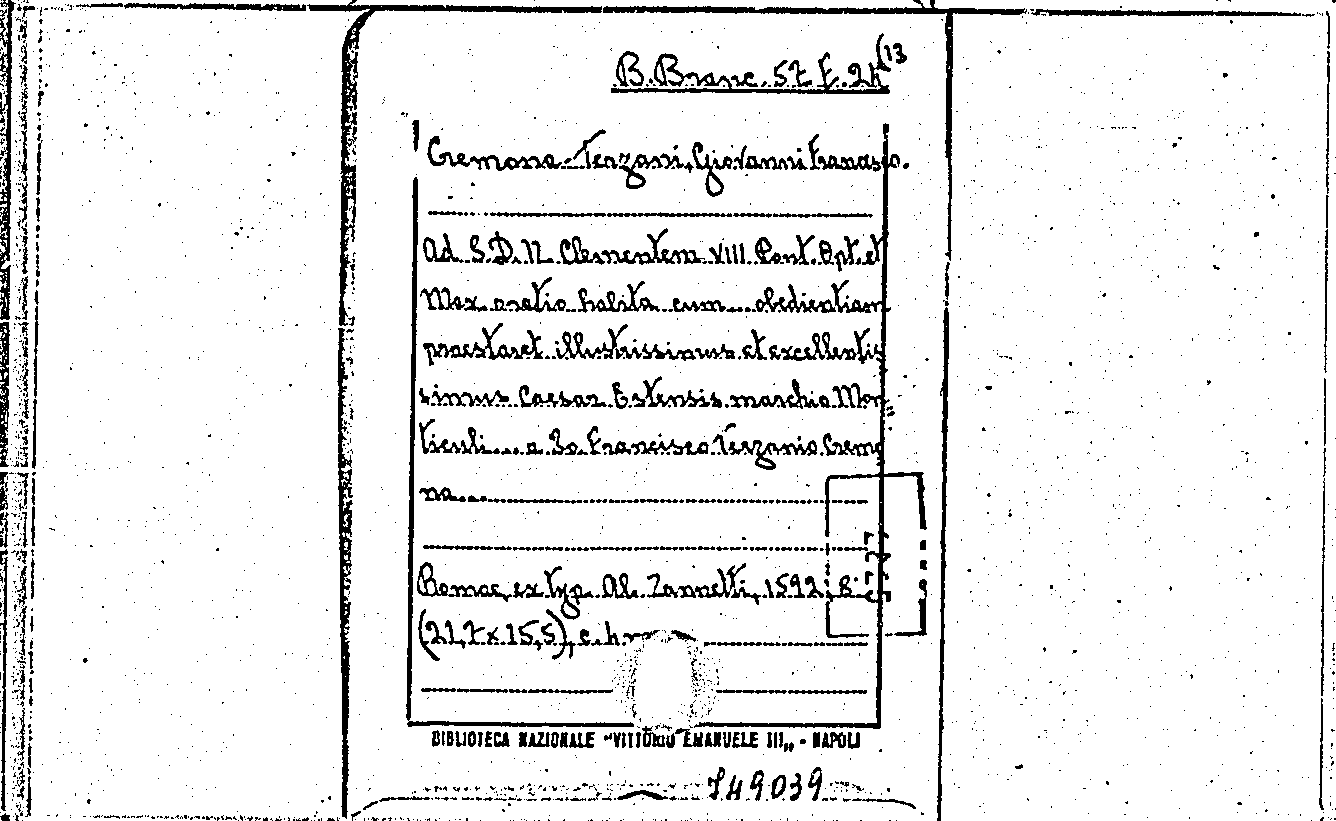 B. Branc. 57 F. 24 (13
Cremona Terzani, Giovanni Francesco.
Ad S. D. N. Clementem VIII Pont. Opt. et
Max oratio habita cum... obedientiam
praestaret illustrissimus et excellentis
simus Caesar Estensis marchio Mon„
ticuli... a Io. Francisco Terzanio Cremo
na...
Romae, ex typ. Al. Zannetti, 1592, 8°
(21,7 x 15,5), c.
BIBLIOTECA NAZIONALE "VITTORIO EMANUELE III„ - NAPOLI
749039